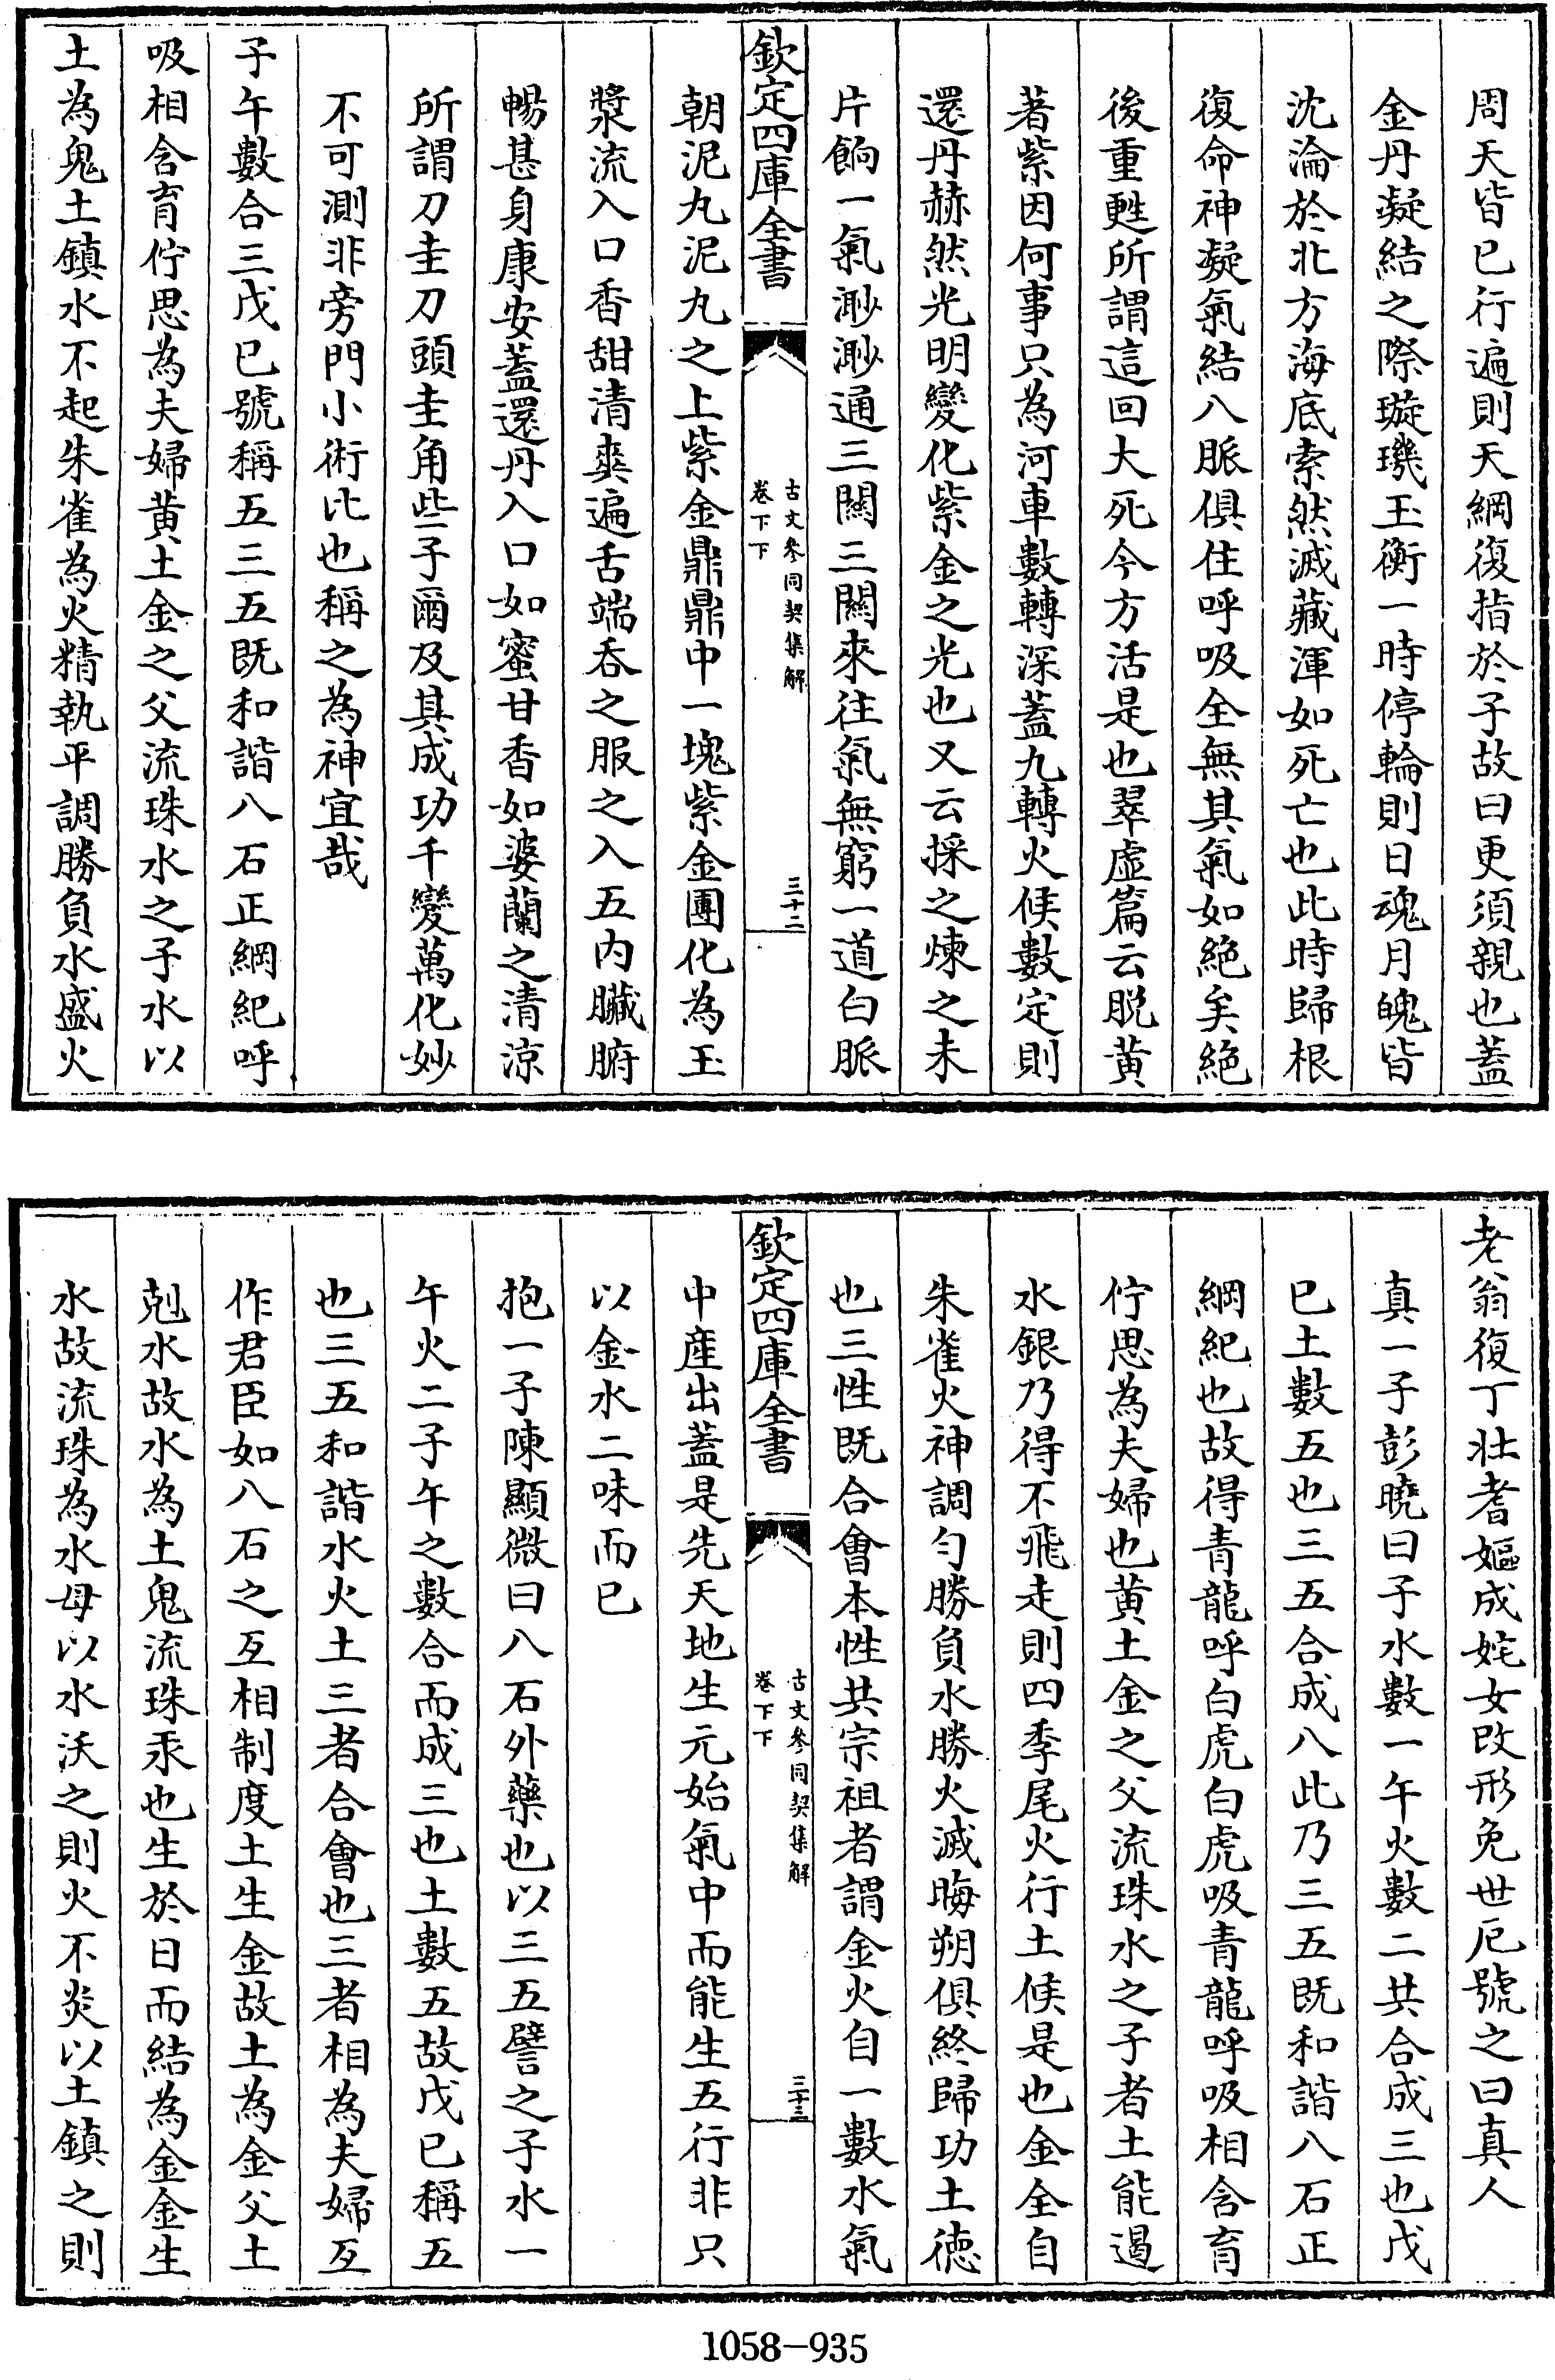 周天皆已行遍則天綱復指於子故曰更須親也蓋
金丹凝結之際璇璣玉衡一時停輪則日魂月魄皆
沈淪於北方海底索然滅藏渾如死亡也此時歸根
復命神凝氣結八脈俱住呼吸全無其氣如絶矣絶
後重甦所謂這回大死今方活是也翠虚篇云脱黄
著紫因何事只為河車數轉深蓋九轉火候數定則
還丹赫然光明變化紫金之光也又云採之煉之未
片餉一氣渺渺通三關三關來往氣無窮一道白脈
欽定四庫全書
古文參同契集解
卷下下
三十二
朝泥丸泥丸之上紫金鼎鼎中一塊紫金團化為玉
漿流入口香甜清爽遍舌端吞之服之入五内臟腑
暢甚身康安蓋還丹入口如蜜甘香如婆蘭之清涼
所謂刀圭刀頭圭角些子爾及其成功千變萬化妙
不可測非旁門小術比也稱之為神宜哉
子午數合三戊己號稱五三五既和諧八石正綱紀呼
吸相含育佇思為夫婦黄土金之父流珠水之子水以
土為鬼土鎮水不起朱雀為火精執平調勝負水盛火
老翁復丁壯耆嫗成姹女改形免世厄號之曰真人
真一子彭曉曰子水數一午火數二共合成三也戊
己土數五也三五合成八此乃三五既和諧八石正
綱紀也故得青龍呼白虎白虎吸青龍呼吸相含育
佇思為夫婦也黄土金之父流珠水之子者土能遏
水銀乃得不飛走則四季尾火行土候是也金全自
朱雀火神調勻勝負水勝火滅晦朔俱終歸功土徳
也三性既合會本性共宗祖者謂金火自一數水氣
欽定四庫全書
古文參同契集解
卷下下
三十三
中産出蓋是先天地生元始氣中而能生五行非只
以金水二味而已
抱一子陳顯微曰八石外藥也以三五譬之子水一
午火二子午之數合而成三也土數五故戊己稱五
也三五和諧水火土三者合會也三者相為夫婦互
作君臣如八石之互相制度土生金故土為金父土
剋水故水為土鬼流珠汞也生於日而結為金金生
水故流珠為水母以水沃之則火不炎以土鎮之則
1058-935